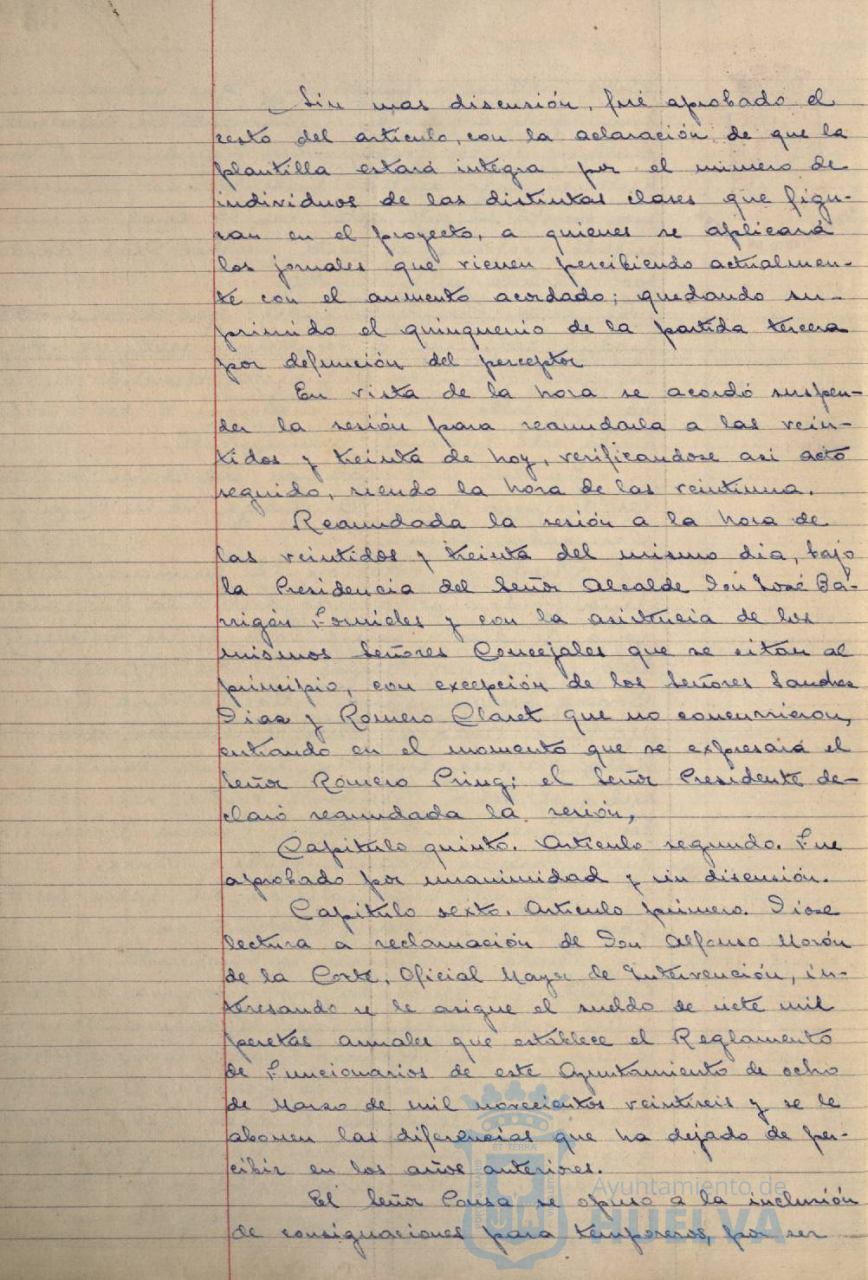 Sin mas discusión, fué aprobado el
resto del artículo, con la aclaración de que la
plantilla estará integra por el número de
individuos de las distintas clases que figu-
ran en el proyecto, a quienes se aplicará
los jornales que vienen percibiendo actualmen-
te con el aumento acordado; quedando su-
primido el quinquenio de la partida tercera
por defunción del perceptor
En vista de la hora se acordó suspen-
der la sesión para reanudarla a las vein-
tidos y treinta de hoy, verificandose asi acto
seguido, siendo la hora de las veintiuna.
Reanudada la sesión a la hora de
las veintidos y treinta del mismo dia, bajo
la Presidencia del Señor Alcalde Don José Ba-
rrigón Fornieles y con la asistencia de los
mismos Señores Concejales que se citan al
principio, con excepción de los Señores Sanchez
Diaz y Romero Claret que no concurrieron,
entrando en el momento que se expresará el
Señor Romero Pring; el Señor Presidente de-
claró reanudada la sesión,
Capitulo quinto. Articulo segundo. Fue
aprobado por unanimidad y sin discusión.
Capitulo sexto. Articulo primero. Diose
lectura a reclamación de Don Alfonso Morón
de la Corte, Oficial Mayor de Intervención, in-
teresando se le asigne el sueldo de siete mil
pesetas anuales que establece el Reglamento
de Funcionarios de este Ayuntamiento de ocho
de Marzo de mil novecientos veintiseis y se le
abonen las diferencias que ha dejado de per-
cibir en los años anteriores.
El Señor Ponsa se opuso a la inclusión
de consignaciones para temporeros, por ser
Ayuntamiento de
HUELVA